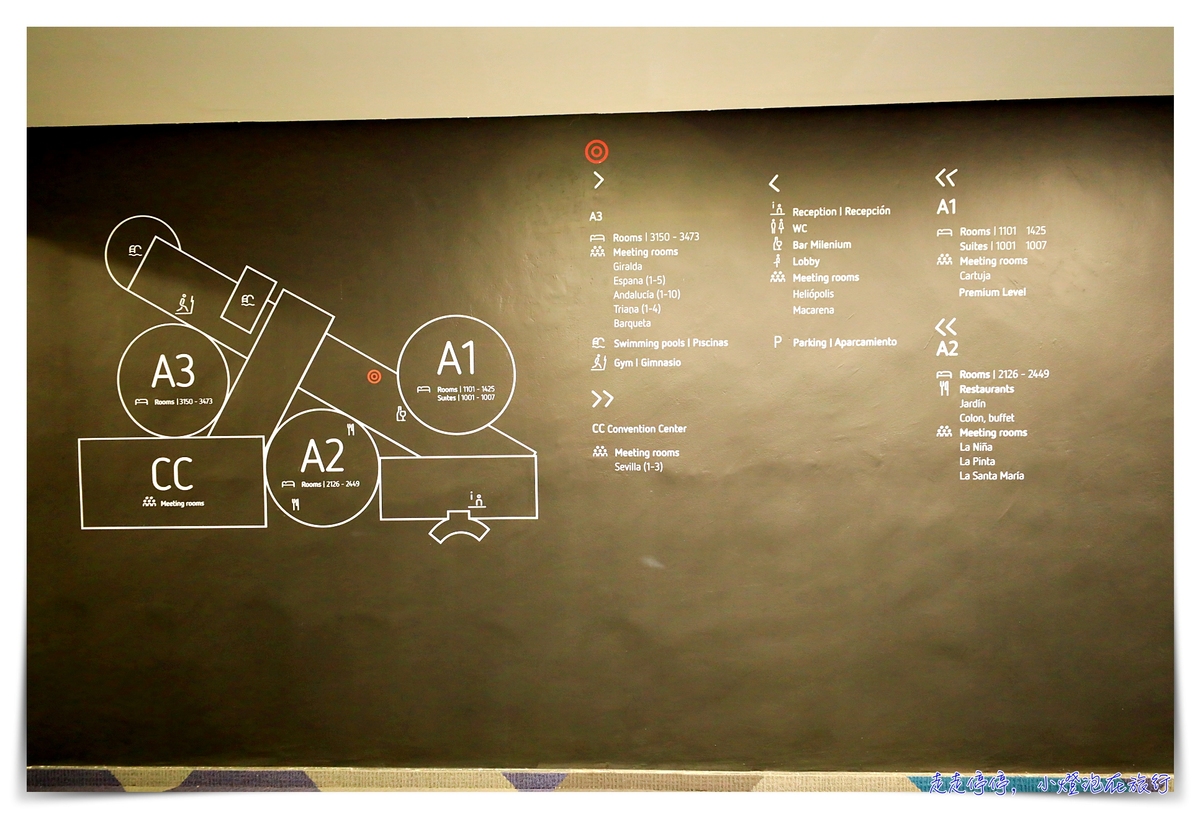 A3
Rooms | 3150 - 3473
CC
Meeting rooms
A2
Rooms | 2126 - 2449
A1
Rooms | 1101 - 1425
Suites | 1001 - 1007
>
A3
Rooms | 3150 - 3473
Meeting rooms
Giralda
Espana (1-5)
Andalucía (1-10)
Triana (1-4)
Barqueta
Swimming pools | Piscinas
Gym | Gimnasio
>>
CC Convention Center
Meeting rooms
Sevilla (1-3)
<
Reception | Recepción
WC
Bar Milenium
Lobby
Meeting rooms
Heliópolis
Macarena
P Parking | Aparcamiento
<<
A1
Rooms | 1101 1425
Suites | 1001 1007
Meeting rooms
Cartuja
Premium Level
<<
A2
Rooms | 2126 - 2449
Restaurants
Jardín
Colon, buffet
Meeting rooms
La Niña
La Pinta
La Santa María
走走停停，小燈泡在旅行